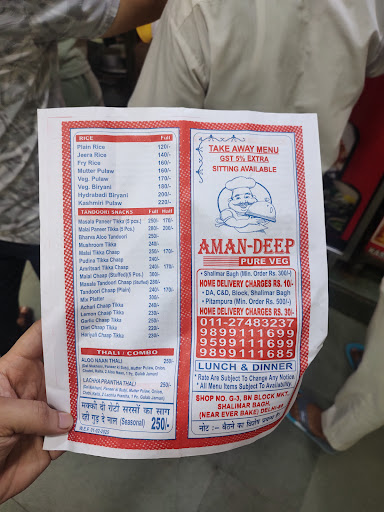 RICE Full
Plain Rice 120/-
Jeera Rice 140/-
Fry Rice 160/-
Mutter Pulaw 160/-
Veg. Pulaw 170/-
Veg. Biryani 180/-
Hydrabadi Biryani 200/-
Kashmiri Pulaw 220/-
TANDOORI SNACKS Full Half
Masala Paneer Tikka (8 pcs.) 250/- 170/-
Malai Paneer Tikka (8 Pcs.) 280/- 200/-
Bharwa Aloo Tandoori 250/-
Mushroom Tikka 240/-
Malai Tikka Chaap 250/- 170/-
Pudina Tikka Chaap 240/-
Amritsari Tikka Chaap 240/- 170/-
Malai Chaap (Stuffed)(8 Pcs.) 300/-
Masala Tandoori Chaap (Stuffed)
Tandoori Chaap (Plain) 240/- 170/-
Mix Platter 300/-
Achari Chaap Tikka 240/-
Lemon Chaap Tikka 230/-
Garlic Chaap Tikka 250/-
Diet Chaap Tikka
Hariyali Chaap Tikka 230/-
THALI / COMBO
ALOO NAAN THALI 250/-
LACHHA PRANTHA THALI 250/-
मक्की दी रोटी सरसों का साग
घी गुड़ दे नाल (Seasonal) 250/-
TAKE AWAY MENU
GST 5% EXTRA
SITTING AVAILABLE
AMAN-DEEP
PURE VEG
• Shalimar Bagh (Min. Order Rs. 300/-)
HOME DELIVERY CHARGES RS. 10/-
• DA, C&D, Block, Shalimar Bagh
• Pitampura (Min. Order Rs. 500/-)
HOME DELIVERY CHARGES RS. 30/-
011-27483237
9899111699
9599111699
9899111685
LUNCH & DINNER
* Rate Are Subject To Change Any Notice
* All Menu Items Subject To Availability.
SHOP NO. G-3, BN BLOCK MKT.
SHALIMAR BAGH,
(NEAR EVER BAKE) DELHI-88